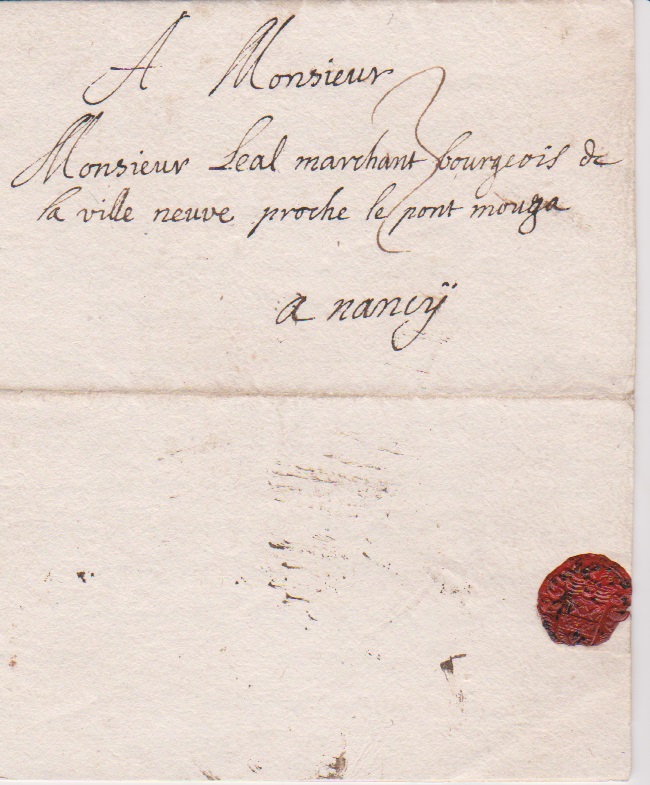 A Monsieur
Monsieur Leal marchant bourgeois de
la ville neuve proche le pont mouga
a nancÿ
3